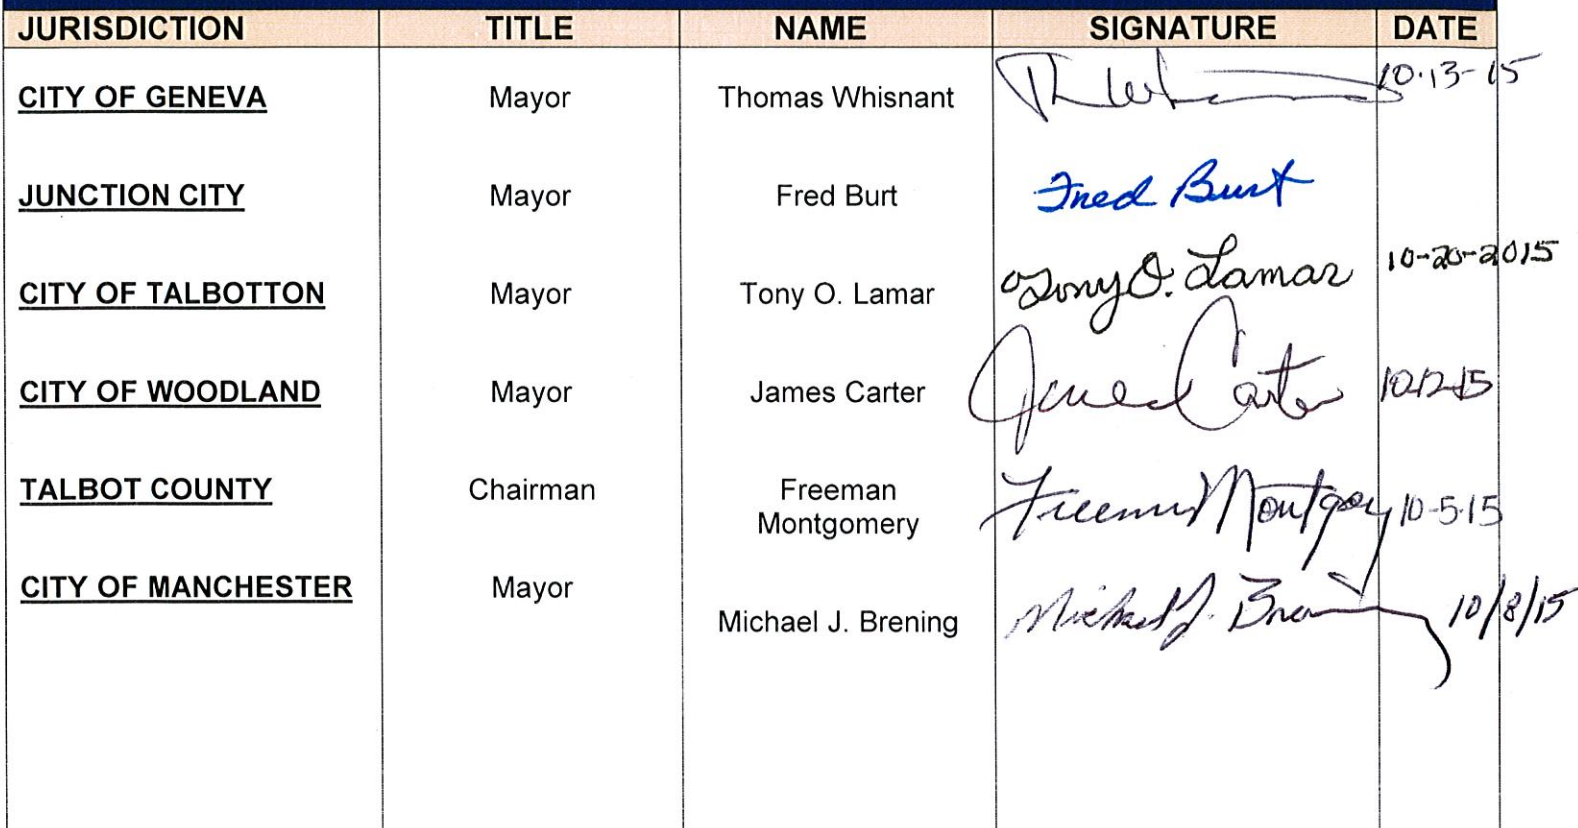 JURISDICTION TITLE NAME SIGNATURE DATE
CITY OF GENEVA Mayor Thomas Whisnant 10-13-15
JUNCTION CITY Mayor Fred Burt Fred Burt
CITY OF TALBOTTON Mayor Tony O. Lamar Tony O. Lamar 10-20-2015
CITY OF WOODLAND Mayor James Carter James Carter 10-12-15
TALBOT COUNTY Chairman Freeman Freeman Montgomery 10-5-15
Montgomery
CITY OF MANCHESTER Mayor
Michael J. Brening Michael J. Brening 10/8/15